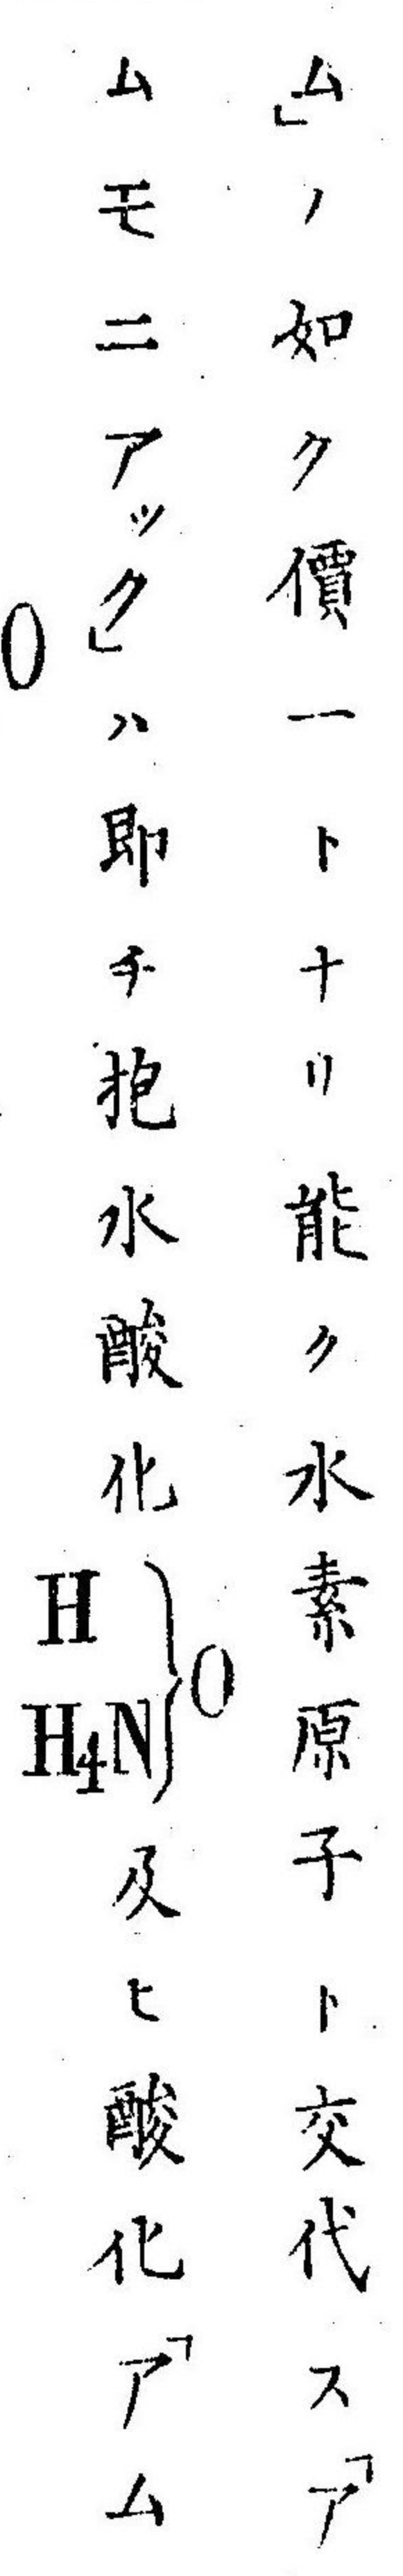 ム」ノ如ク價一トナリ能ク水素原子ト交代ス「ア
ムモニアック」ハ即チ抱水酸化 H H₄N } O 及ヒ酸化「アム
O